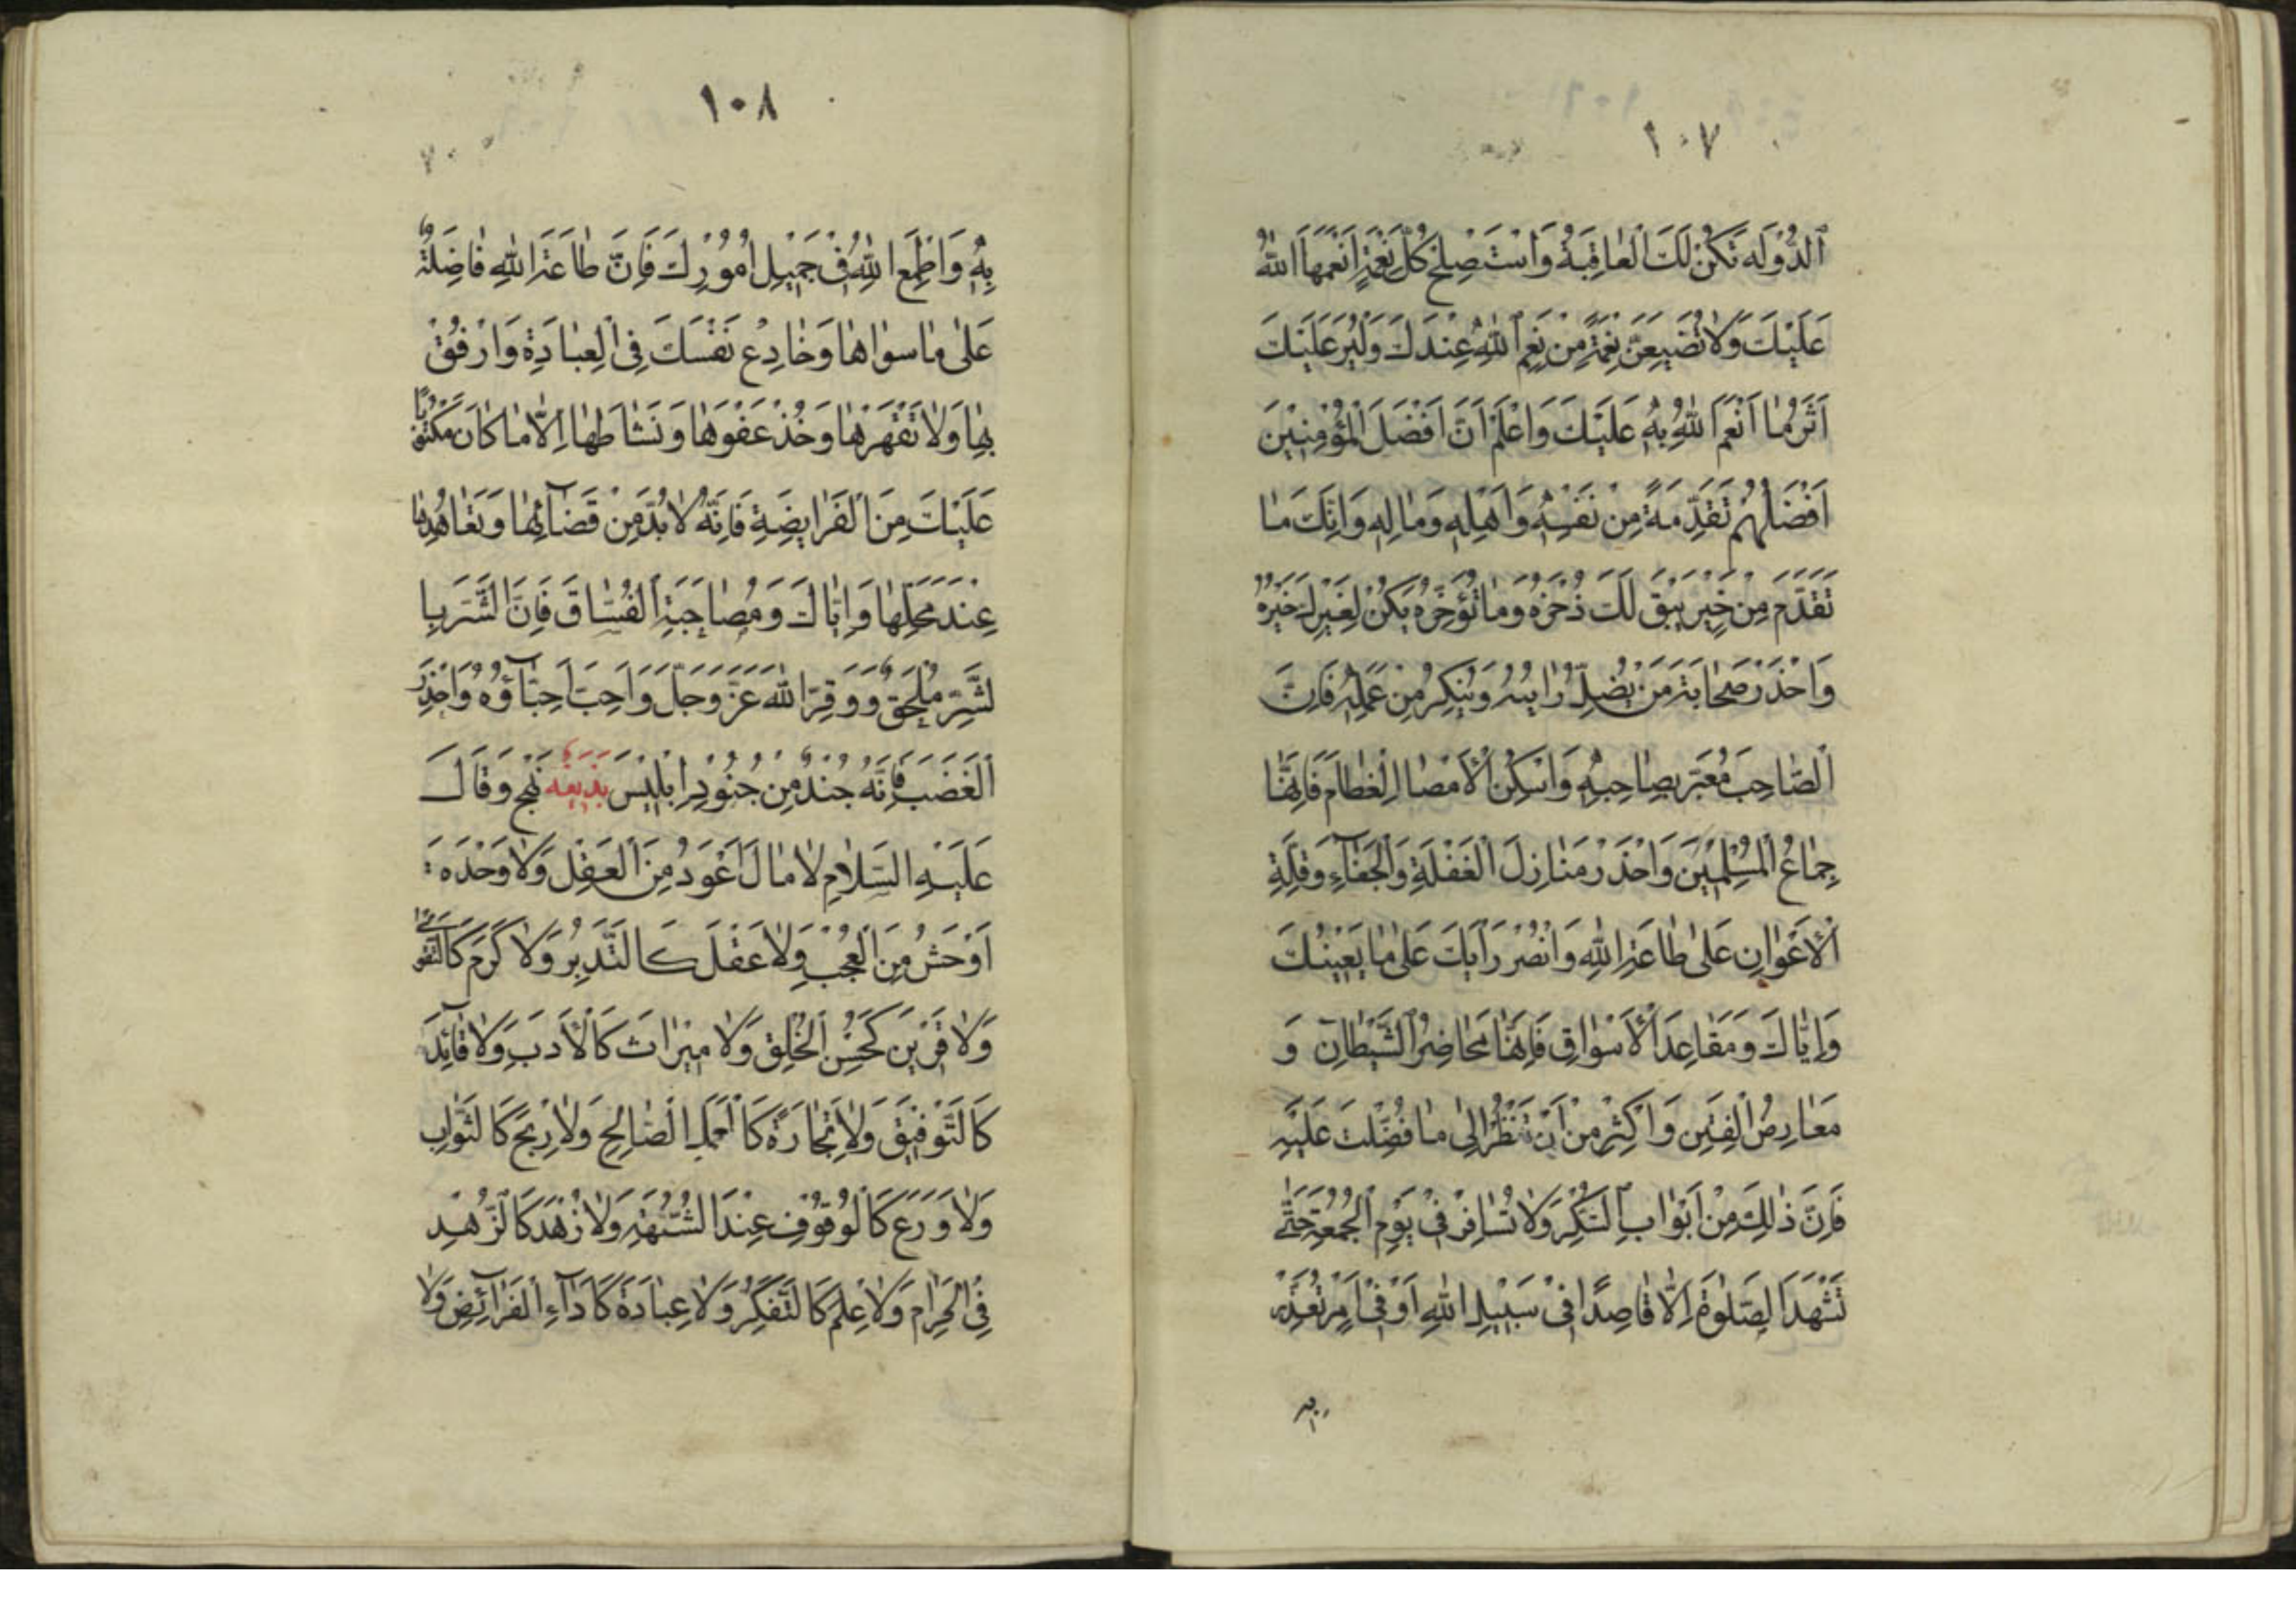 ١٠٧
اَلدَّوْلَه تَكُنْ لَكَ الْعٰاقِبَةُ وَاسْتَصْلِحْ كُلَّ نِعْمَةٍ اَنْعَمَهَا اللّٰهُ
عَلَيْكَ وَلاٰ تُضَيِّعَنَّ نِعْمَةً مِنْ نِعَمِ اللّٰهِ عِنْدَكَ وَلْيُرَ عَلَيْكَ
اَثَرُ مٰا اَنْعَمَ اللّٰهُ بِهِ عَلَيْكَ وَاعْلَمْ اَنَّ اَفْضَلَ الْمُؤْمِنِيْنَ
اَفْضَلُهُمْ تَقْدِمَةً مِنْ نَفْسِهِ وَاَهْلِهِ وَمٰالِهِ وَاِنَّكَ مٰا
تُقَدِّمْ مِنْ خَيْرٍ يَبْقَ لَكَ ذُخْرُهُ وَمٰا تُؤَخِّرْهُ يَكُنْ لِغَيْرِكَ خَيْرُهُ
وَاحْذَرْ صَحٰابَةَ مَنْ يَضِلُّ رَايُهُ وَيُنْكَرُ مِنْ عَمَلِهِ فَاِنَّ
الصّٰاحِبَ مُعْتَبَر بِصٰاحِبِهِ وَاسْكِنْ الْاَمْصٰا الْعِظٰامَ فَاِنَّهٰا
جِمٰاعُ الْمُسْلِمِيْنَ وَاحْذَرْ مَنٰازِلَ الْغَفْلَةِ وَالْجَفٰآءِ وَقِلَّةِ
الْاَعْوٰانِ عَلىٰ طٰاعَةِ اللّٰهِ وَانْصُرْ رَاْيَكَ عَلىٰ مٰا يَعْيْنُكَ
وَاِيّٰاكَ وَمَقٰاعِدَ الْاَسْوٰاقِ فَاِنَّهٰا مَحٰاضِرُ الشَّيْطٰانِ وَ
مَعٰارِضُ الْفِتَنِ وَاَكْثِرْ مِنْ اَنْ تَنْظُرَ اِلىٰ مٰا فُضِّلْتَ عَلَيْهِ
فَاِنَّ ذٰلِكَ مِنْ اَبْوٰابِ الشُّكْرِ وَلاٰ تُسٰافِرْ فِيْ يَوْمِ الْجُمُعَةِ حَتّٰى
تَشْهَدَ الصَّلوٰةَ اِلّاٰ قٰاصِدًا فِيْ سَبِيْلِ اللّٰهِ اَوْ فِيْ اَمْرٍ تُعْذَرُ
١٠٨
بِهِ وَاَطِعِ اللّٰهَ فِيْ جَمِيْلِ اُمُوْرِكَ فَاِنَّ طٰاعَةَ اللّٰهِ فٰاضِلَةٌ
عَلىٰ مٰا سِوٰاهٰا وَخٰادِعْ نَفْسَكَ فِي الْعِبٰادَةِ وَارْفُقْ
بِهٰا وَلاٰ تَقْهَرْهٰا وَخُذْ عَفْوَهٰا وَنَشٰاطَهٰا اِلّاٰ مٰا كٰانَ مَكْتُوْبًا
عَلَيْكَ مِنَ الْفَرٰايِضَةِ فَاِنَّهُ لاٰ بُدَّ مِنْ قَضٰآئِهٰا وَتَعٰاهُدِهٰا
عِنْدَ مَحَلِّهٰا وَاِيّٰاكَ وَمُصٰاحَبَةَ الْفُسّٰاقَ فَاِنَّ الشَّرَ بِا
لشَّرِ مُلْحَقٌ وَوَقِّرِ اللّٰهَ عَزَّ وَجَلَّ وَاَحِبَّ اَحِبّٰآؤُهُ وَاحْذَرِ
الْغَضَبَ فَاِنَّهُ جُنْدٌ مِنْ جُنُوْدِ اِبْلِيْسَ بَدِيْعَة نَهْج وَقٰالَ
عَلَيْهِ السَّلاٰمِ لاٰ مٰالَ اَعْوَدُ مِنَ الْعَقْلِ وَلاٰ وَحْدَهَ ةَ
اَوْحَشُ مِنَ الْعُجْبِ وَلاٰ عَقْلَ كَالتَّدْبِيْرِ وَلاٰ كَرَمَ كَالتَّقْوىٰ
وَلاٰ قَرْيْنَ كَحُسْنِ الْخُلْقِ وَلاٰ مِيْرٰاثَ كَالْاَدَبِ وَلاٰ قٰآئِدَ
كَالتَّوْفِيْقِ وَلاٰ تِجٰارَةَ كَاَلْعَمَلِ الصّٰالِحِ وَلاٰ رِبْحَ كَالثَّوٰابِ
وَلاٰ وَرَعَ كَالْوُقُوْفِ عِنْدَ الشُّبْهَةِ وَلاٰ زُهْدَ كَالزُّهْدِ
فِي الْحَرٰامِ وَلاٰ عِلْمَ كَالتَّفَكُّرِ وَلاٰ عِبٰادَةَ كَاَدٰآءِ الْفَرٰآئِضِ وَلاٰ